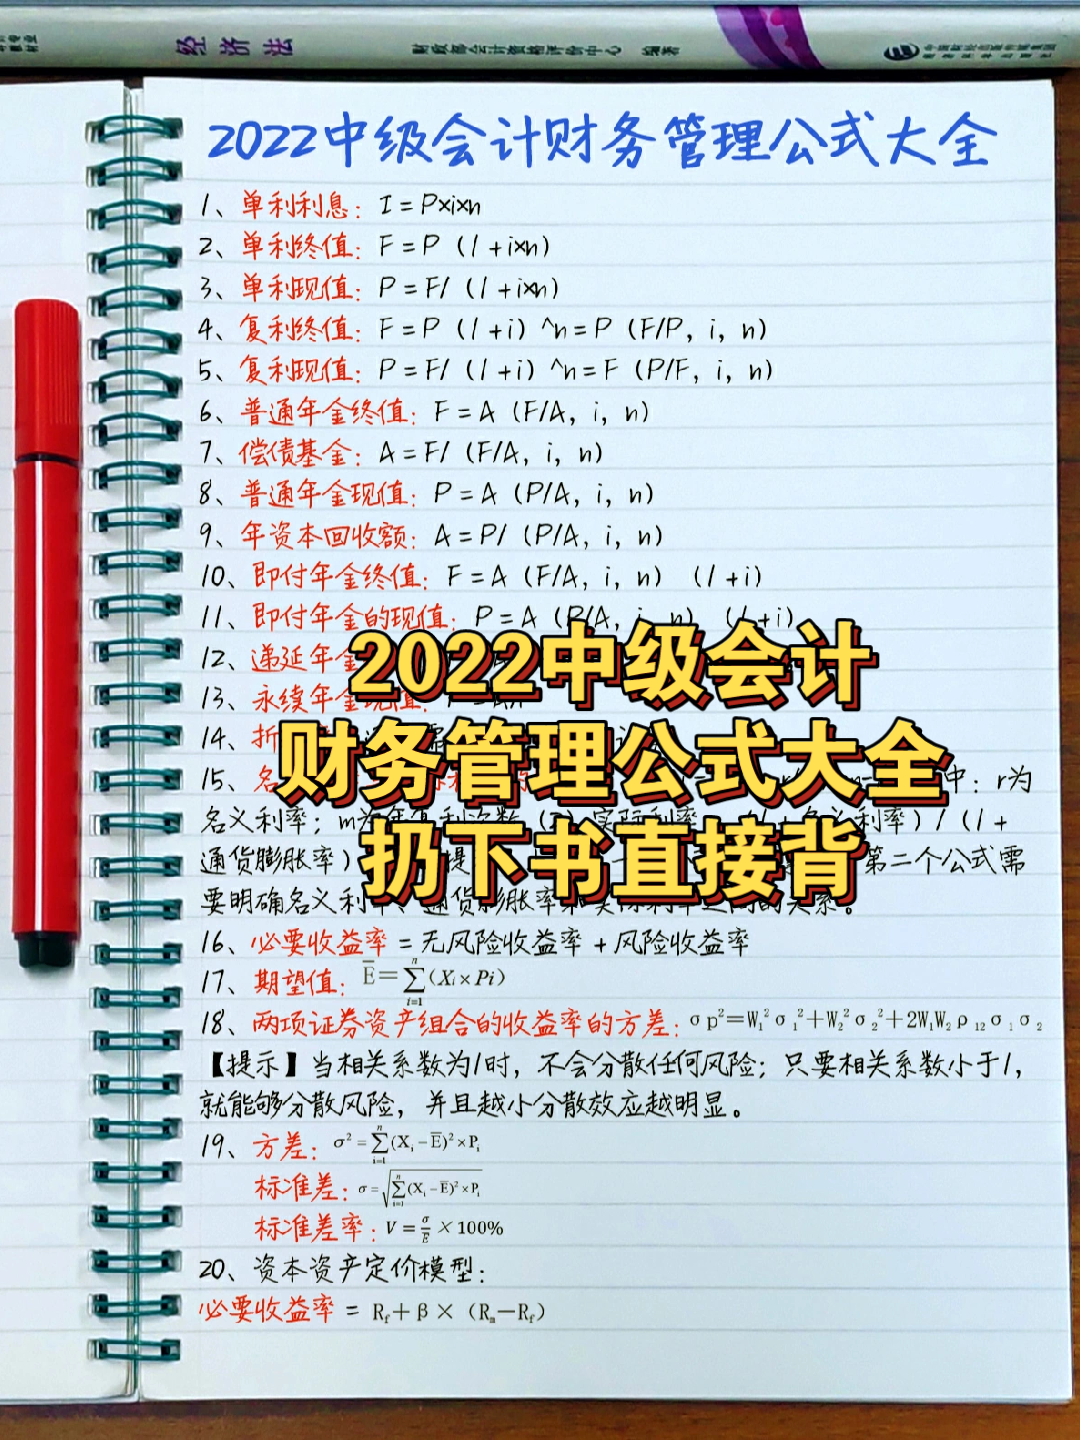 经济法 财政部会计资格评价中心 编著
2022中级会计财务管理公式大全
1、单利利息：I=P×i×n
2、单利终值：F=P（1+i×n）
3、单利现值：P=F/（1+i×n）
4、复利终值：F=P（1+i）^n=P（F/P，i，n）
5、复利现值：P=F/（1+i）^n=F（P/F，i，n）
6、普通年金终值：F=A（F/A，i，n）
7、偿债基金：A=F/（F/A，i，n）
8、普通年金现值：P=A（P/A，i，n）
9、年资本回收额：A=P/（P/A，i，n）
10、即付年金终值：F=A（F/A，i，n）（1+i）
11、即付年金的现值：P=A（P/A，i，n）（1+i）
12、递延年金
13、永续年金现值：
14、折
15、名 中：r为
名义利率；m为年复利次数 实际利率 名义利率）/（1+
通货膨胀率） 提 第二个公式需
要明确名义利率、通货膨胀率和实际利率之间的关系。
2022中级会计
财务管理公式大全
扔下书直接背
16、必要收益率=无风险收益率+风险收益率
17、期望值：E̅=∑ⁿᵢ₌₁(Xᵢ×Pi)
18、两项证券资产组合的收益率的方差：σp²=W₁²σ₁²+W₂²σ₂²+2W₁W₂ρ₁₂σ₁σ₂
【提示】当相关系数为1时，不会分散任何风险；只要相关系数小于1，
就能够分散风险，并且越小分散效应越明显。
19、方差：σ²=∑ⁿᵢ₌₁(Xᵢ-E̅)²×Pᵢ
标准差：σ=√∑ⁿᵢ₌₁(Xᵢ-E̅)²×Pᵢ
标准差率：V=σ/E̅×100%
20、资本资产定价模型：
必要收益率=R_f+β×（R_m—R_f）